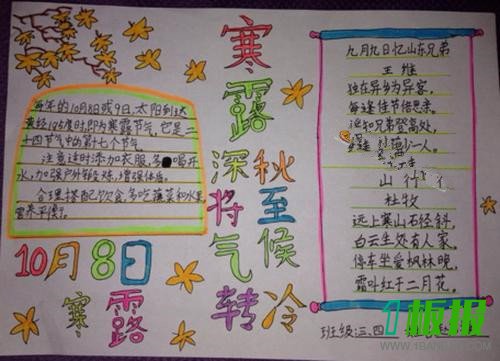 每年的10月8日或9日,太阳到达
黄经195度时,即为寒露节气,它是二
十四节气中的第十七个节气。
注意这时添加衣服,多喝开
水,加强户外锻炼,增强体质。
合理搭配饮食,多吃蔬菜和水果,
营养平衡。
10月8日
寒露
寒露
深秋
将至
气候
转冷
九月九日忆山东兄弟
王维
独在异乡为异客,
每逢佳节倍思亲。
遥知兄弟登高处,
少一人。
山行
杜牧
远上寒山石径斜,
白云生处有人家。
停车坐爱枫林晚,
霜叶红于二月花。
班级:三、四
1板报
WWW.1BANBAO.COM